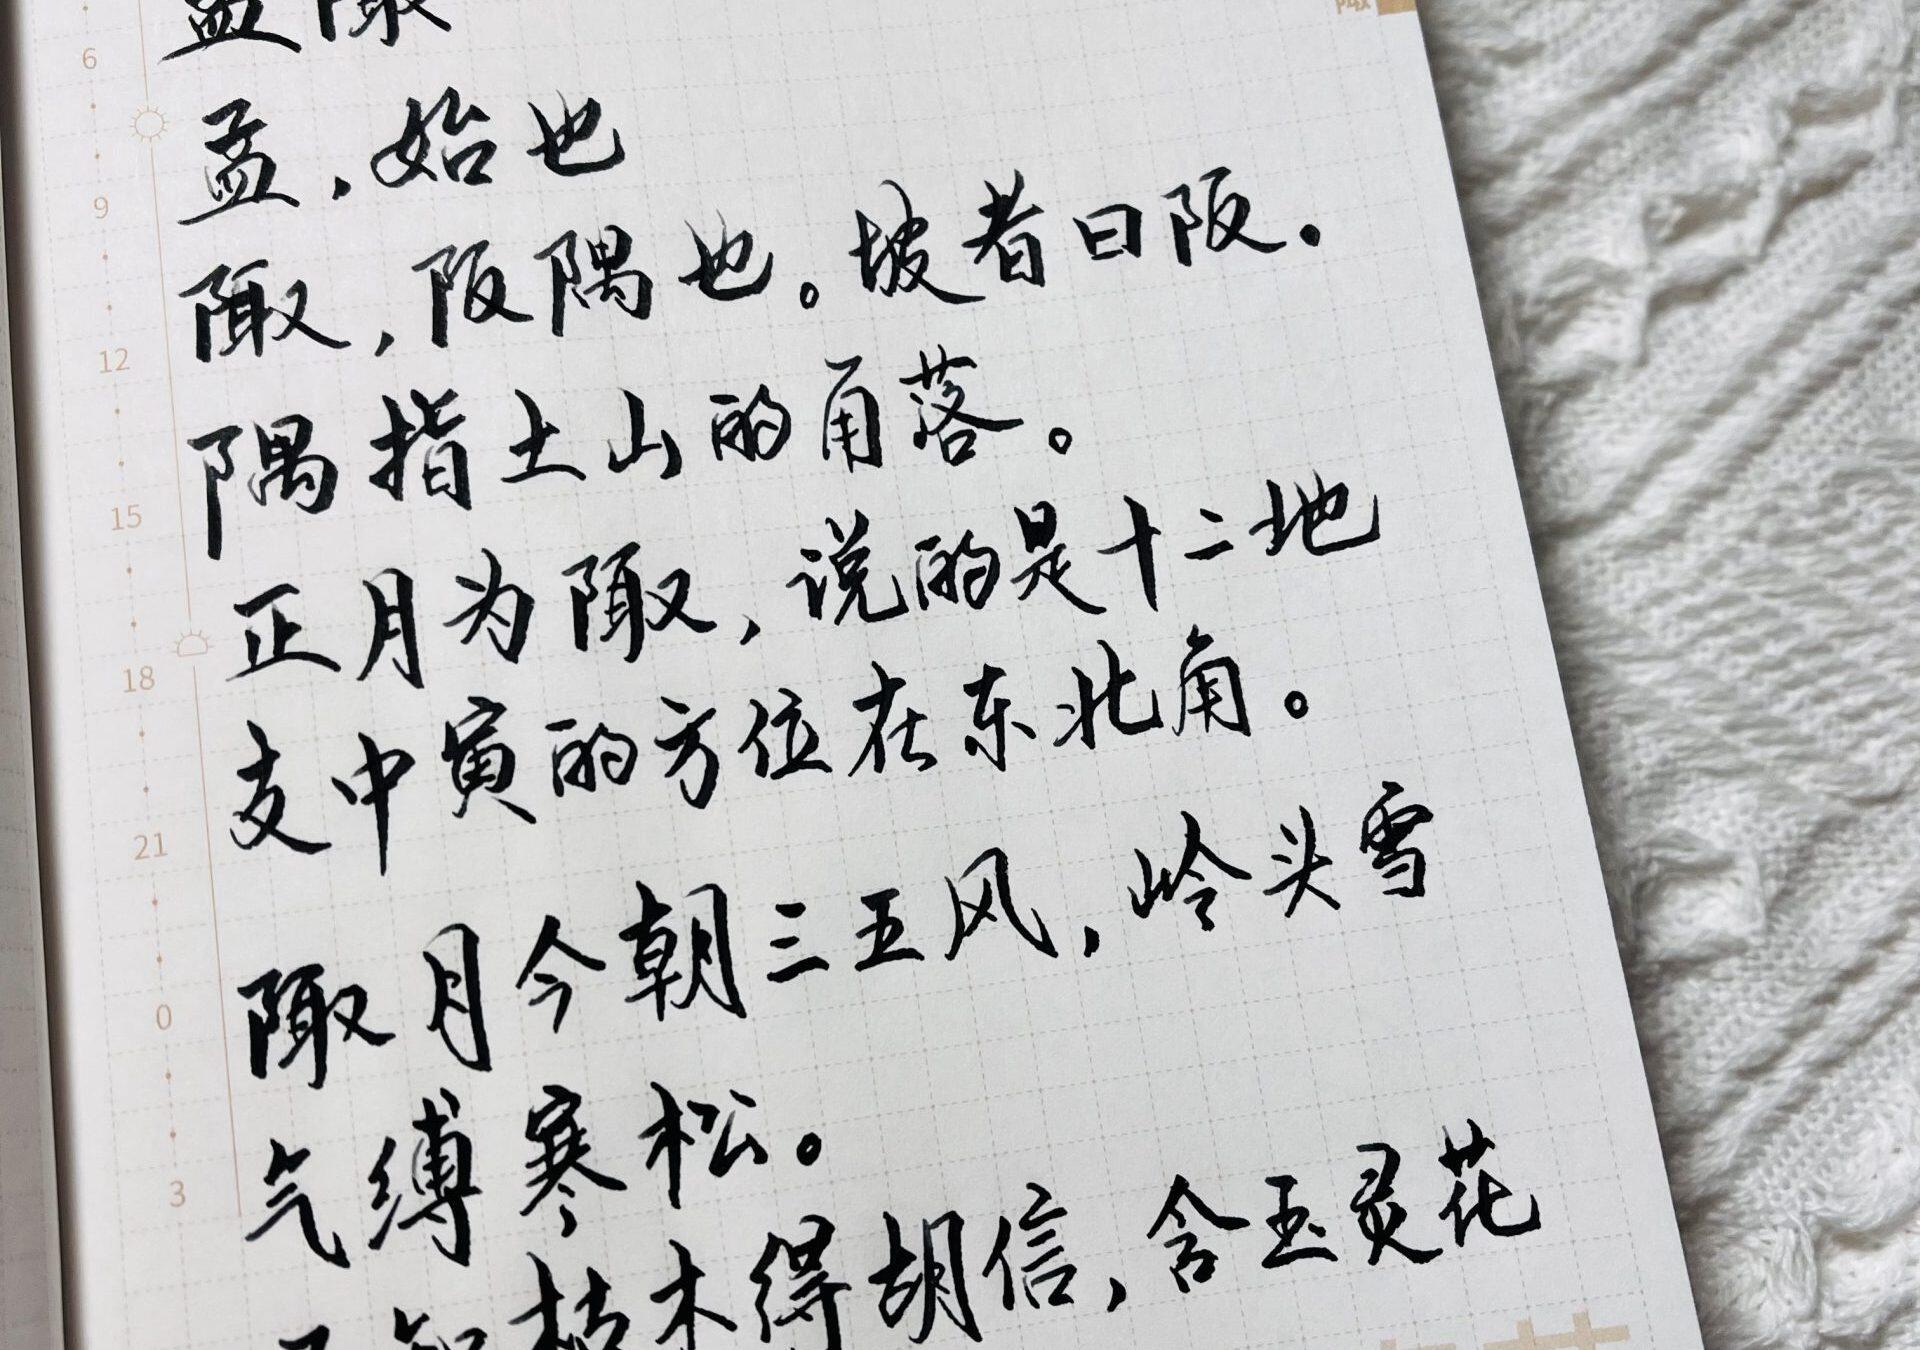 孟陬
6
孟，始也
9
陬，阪隅也。坡者曰阪．
12
隅指土山的角落。
15
正月为陬，说的是十二地
18
支中寅的方位在东北角。
21
陬月今朝三五风，岭头雪
0
气缚寒松。
3
知枯木得胡信，含玉灵花